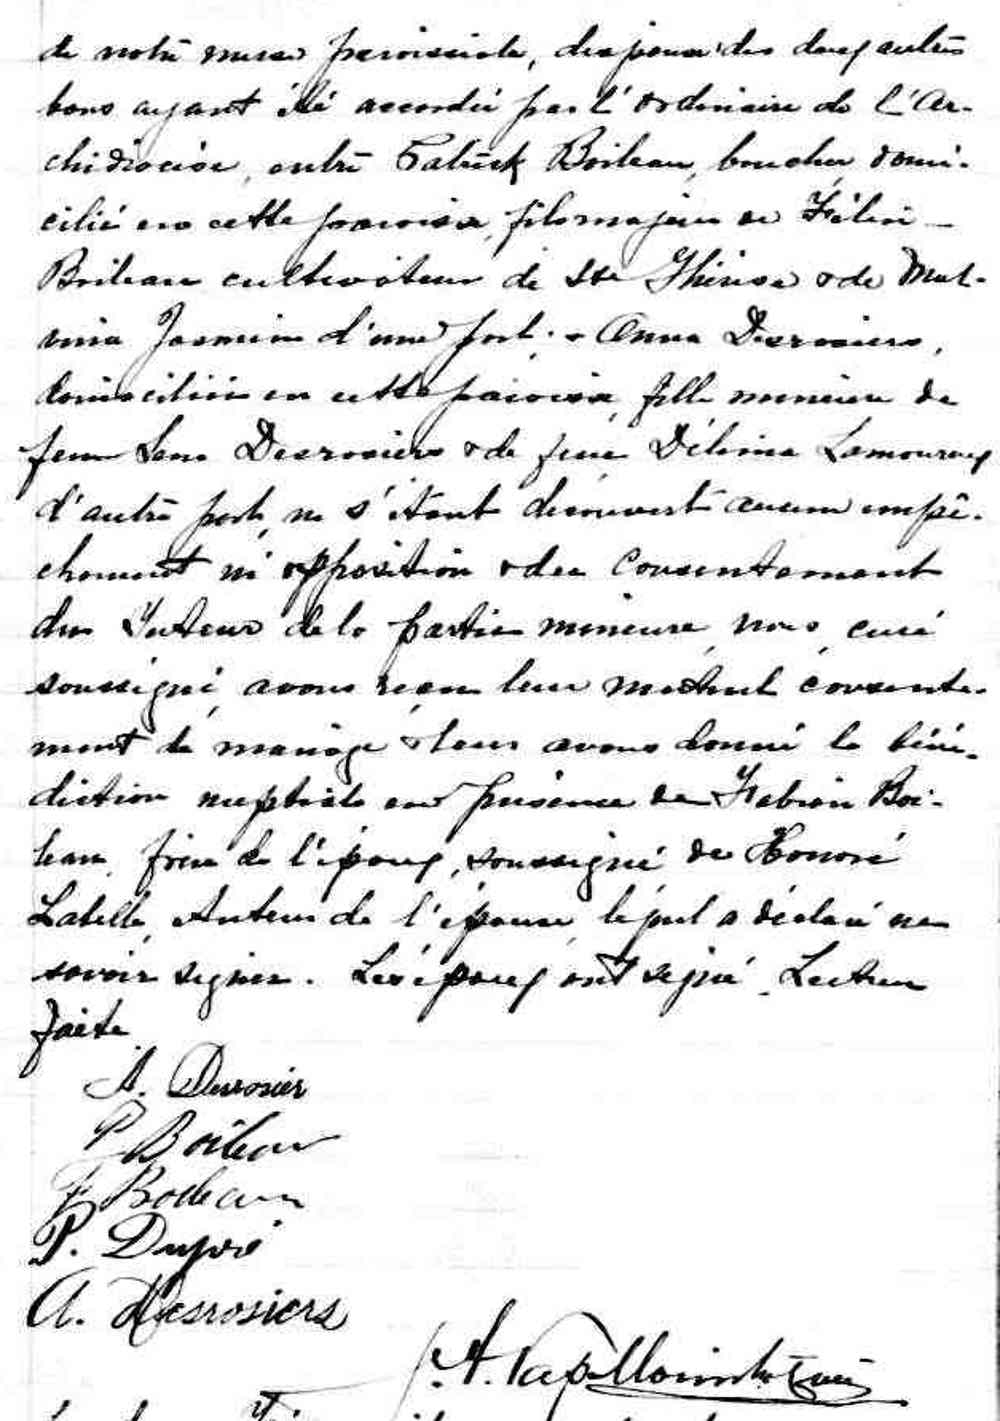 de notre messe paroissiale, dispense des deux autres
bans ayant été accordée par l'Ordinaire de l'Ar-
chidiocèse, entre Patrick Boileau, boucher domi-
cilié en cette paroisse, fils majeur de Félix
Boileau cultivateur de Ste Thérèse & de Mal-
vina Jasmin d'une part; & Anna Desrosiers,
domiciliée en cette paroisse, fille mineure de
feu Desrosiers & de feue Délima Lamoureux
d'autre part, ne s'étant découvert aucun empê-
chement ni opposition & du consentement
du Tuteur de la partie mineure, nous, curé
soussigné, avons reçu leur mutuel consente-
ment de mariage & leur avons donné la béné-
diction nuptiale en présence de Fabien Boi-
leau, frère de l'époux, soussigné de Honoré
Labelle, tuteur de l'épouse, lequel a déclaré ne
savoir signer. Les époux ont signé. Lecture
faite
A. Desrosier
P Boileau
F Boileau
P. Dupré
A. Desrosiers